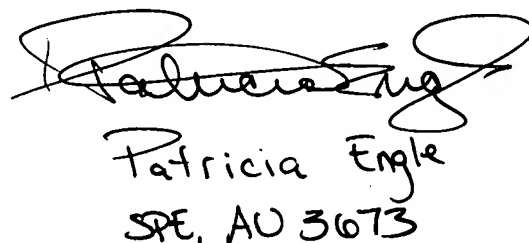 Patricia Eng
Patricia Engle
SPE, AU 3673